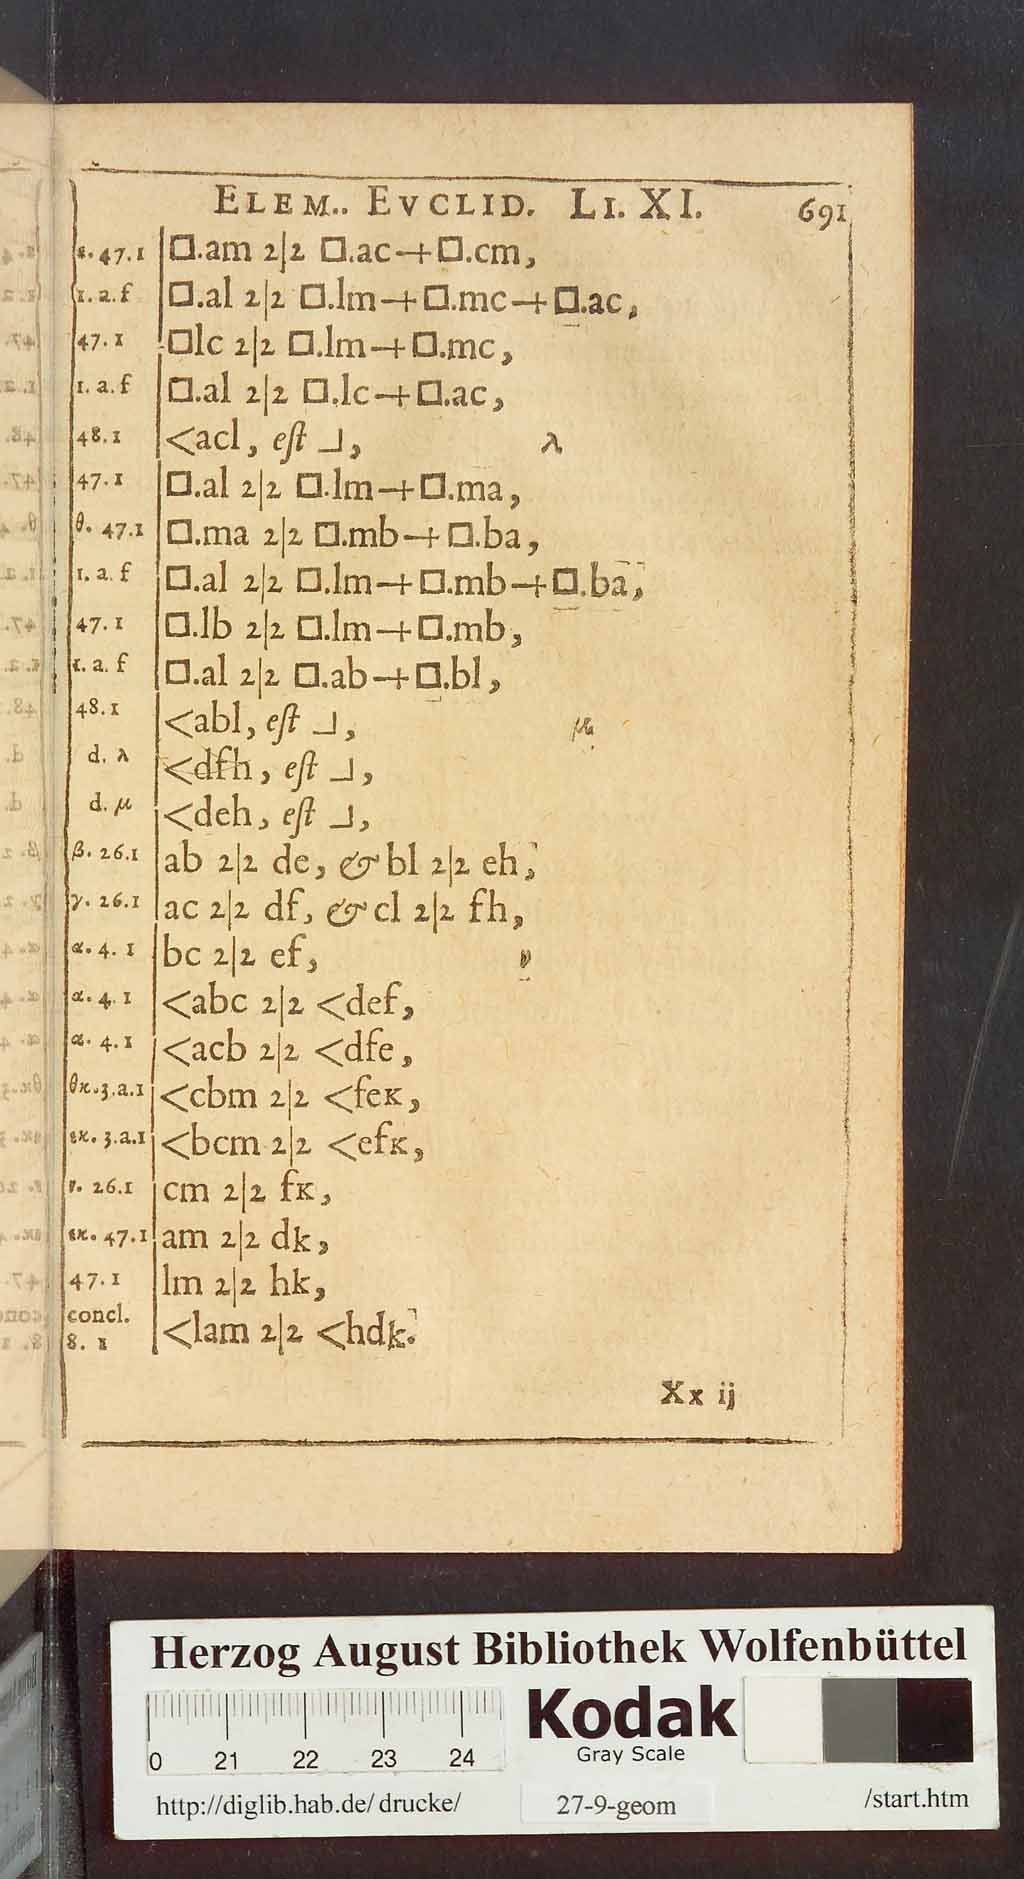 ELEM.. EVCLID. LI. XI. 691
ε. 47.1 □.am 2|2 □.ac+□.cm,
1. a. f □.al 2|2 □.lm+□.mc+□.ac,
47. 1 □lc 2|2 □.lm+□.mc,
1. a. f □.al 2|2 □.lc+□.ac,
48. 1 <acl, eſt ┘, λ
47. 1 □.al 2|2 □.lm+□.ma,
θ. 47.1 □.ma 2|2 □.mb+□.ba,
1. a. f □.al 2|2 □.lm+□.mb+□.ba,
47. 1 □.lb 2|2 □.lm+□.mb,
1. a. f □.al 2|2 □.ab+□.bl,
48. 1 <abl, eſt ┘, μ
d. λ <dfh, eſt ┘,
d. μ <deh, eſt ┘,
β. 26.1 ab 2|2 de, & bl 2|2 eh,
γ. 26.1 ac 2|2 df, & cl 2|2 fh,
α. 4. 1 bc 2|2 ef, ν
α. 4. 1 <abc 2|2 <def,
α. 4. 1 <acb 2|2 <dfe,
θκ. 3.a.1 <cbm 2|2 <feκ,
εκ. 3.a.1 <bcm 2|2 <efκ,
ν. 26.1 cm 2|2 fκ,
εκ. 47.1 am 2|2 dk,
47. 1 lm 2|2 hk,
concl.
8. 1 <lam 2|2 <hdk.
Xx ij
Herzog August Bibliothek Wolfenbüttel
0 21 22 23 24
Kodak
Gray Scale
http://diglib.hab.de/drucke/ 27-9-geom /start.htm